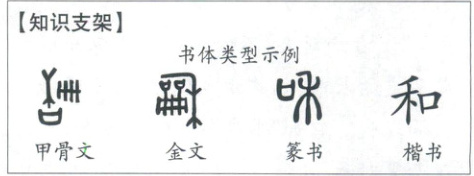 【知识支架】
书体类型示例
和
甲骨文 金文 篆书 楷书